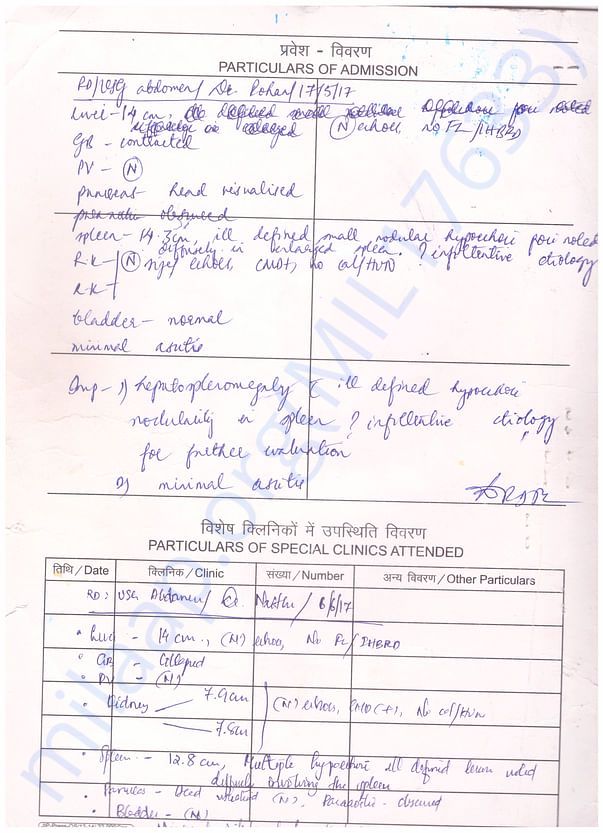 प्रवेश - विवरण
PARTICULARS OF ADMISSION
RD/USG abdomen/ Dr. Rohan/17/5/17
Liver-14 cm,
(N) echoes, no FL/IHBRD
GB - contracted
PV - (N)
pancreas- head visualised
spleen - 14.3cm, ill defined small nodular hypoechoic foci noted
diffusely in enlarged spleen. ? infiltrative etiology
R.K- (N) size/ echoes, CMD+, no cal/HN
L.K-
bladder - normal
minimal ascitis
Imp - 1) hepatosplenomegaly c ill defined hypoechoic
nodularity in spleen ? infiltrative etiology
for further evaluation
2) minimal ascitis
विशेष क्लिनिकों में उपस्थिति विवरण
PARTICULARS OF SPECIAL CLINICS ATTENDED
तिथि/Date क्लिनिक/Clinic संख्या/Number अन्य विवरण/Other Particulars
RD: USG Abdomen/ Dr. 6/6/17
• Liver - 14 cm., (N) echoes, No FL/IHBRD
• GB - Collapsed
• PV - (N)
• Kidney 7.9cm (N) echoes, CMD (+), No cal/HN
7.8cm
• Spleen - 12.8 cm, Multiple hypoechoic ill defined lesions noted
diffusely involving the spleen
• Pancreas - Head visualised (N), Paraaortic - obscured
• Bladder - (N)
milaap.org(MIL 17633)